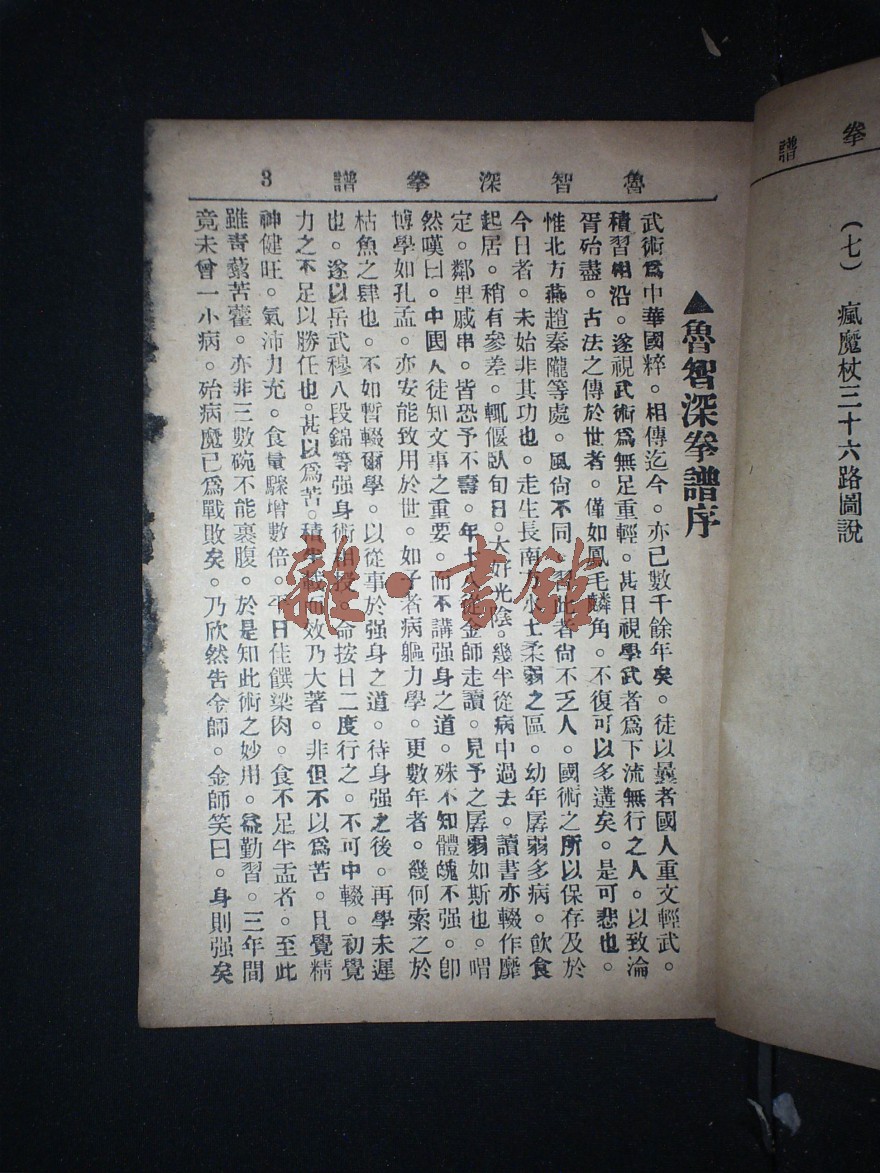 譜 拳
(七) 瘋魔杖三十六路圖說
3 譜 拳 深 智 魯
▲魯智深拳譜序
武術爲中華國粹。相傳迄今。亦已數千餘年矣。徒以曩者國人重文輕武。
積習相沿。遂視武術爲無足重輕。甚日視學武者爲下流無行之人。以致淪
胥殆盡。古法之傳於世者。僅如鳳毛麟角。不復可以多遘矣。是可悲也。
惟北方燕趙秦隴等處。風尙不同。習此者尙不乏人。國術之所以保存及於
今日者。未始非其功也。走生長南方水土柔弱之區。幼年孱弱多病。飲食
起居。稍有參差。輒偃臥旬日。大好光陰。幾半從病中過去。讀書亦輟作靡
定。鄰里戚串。皆恐予不壽。年十八從金師走讀。見予之孱弱如斯也。喟
然嘆曰。中國人徒知文事之重要。而不講强身之道。殊不知體魄不强。卽
博學如孔孟。亦安能致用於世。如子者病軀力學。更數年者。幾何索之於
枯魚之肆也。不如暫輟爾學。以從事於强身之道。待身强之後。再學未遲
也。遂以岳武穆八段錦等强身術相授。命按日二度行之。不可中輟。初覺
力之不足以勝任也。甚以爲苦。積半載而效乃大著。非但不以爲苦。且覺精
神健旺。氣沛力充。食量驟增數倍。平日佳饌粱肉。食不足半盂者。至此
雖靑藜苦藿。亦非三數碗不能裹腹。於是知此術之妙用。益勤習。三年間
竟未曾一小病。殆病魔已爲戰敗矣。乃欣然告金師。金師笑曰。身則强矣
雜·書館